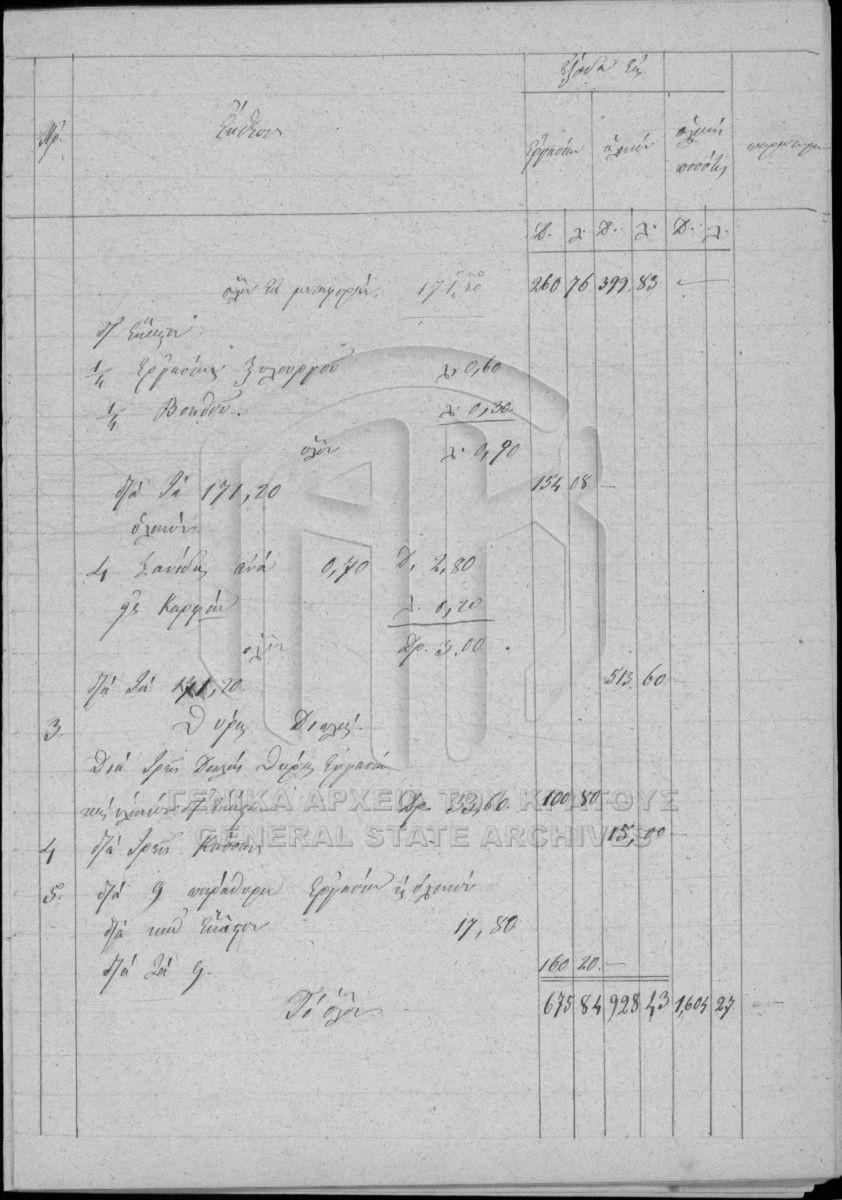 Ἔξοδα διὰ
Ἀρ. Ἔκθεσις Ἐργασίαν ὑλικόν ὁλική ποσότης παρατηρ.
Δ. λ. Δ. λ. Δ. λ.
ὅλον ἐκ μεταφορᾶς 171,20 260 76 399 83 —
δι' ἕκαστον
1/4 Ἐργασίας ξυλουργοῦ λ. 0,60
1/4 Βοηθοῦ λ. 0,30
ὅλον λ. 0,90
διὰ τὰ 171,20 154 08 —
ὑλικόν
4 σανίδας ἀνὰ 0,70 Δ. 2,80
καρφιά λ. 0,20
ὅλον Δρ. 3,00
διὰ τὰ 171,20 513 60
3. Θύρας διπλᾶς
Διὰ τρεῖς διπλᾶς θύρας ἐργασία
καὶ ὑλικόν δι' ἑκάστην Δρ. 33,60 100 80 —
4 διὰ τρεῖς κάσσας 15,00
5. διὰ 9 παράθυρα ἐργασία καὶ ὑλικόν
διὰ καθ' ἕκαστον 17,80
διὰ τὰ 9. 160 20 —
Τὸ ὅλον 675 84 928 43 1,604 27
ΓΕΝΙΚΑ ΑΡΧΕΙΑ ΤΟΥ ΚΡΑΤΟΥΣ
GENERAL STATE ARCHIVES